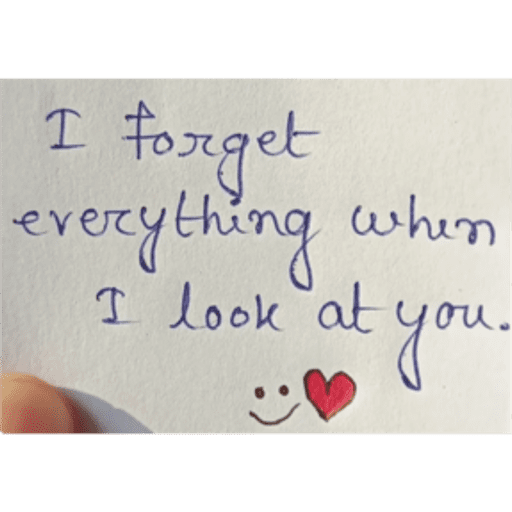 I forget
everything when
I look at you.